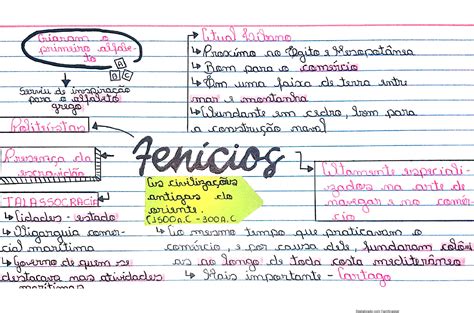 Criaram o
primeiro alfabe-
to
A
B C
Serviu de inspiração
para o alfabeto
grego
Politeístas
Presença da
escravidão
TALASSOCRACIA
↳ Cidades - estado
↳ Oligarquia comer-
cial marítima
↳ Governo de quem se
destacava nas atividades
marítimas
Fenícios
As civilizações
antigas do
oriente.
(1500a.C - 300a.C
↳ Atual Líbano
↳ Próximo ao Egito e Mesopotâmia
↳ Bom para o comércio
↳ Em uma faixa de terra entre
mar e montanha
↳ Abundante em cedro, bom para
a construção naval
↳ Altamente especiali-
zados na arte de
navegar e no comér-
cio
↳ Ao mesmo tempo que praticavam o
comércio, e por causa dele, fundaram colôni
as ao longo de toda costa mediterrâneo
↳ Mais importante - Cartago